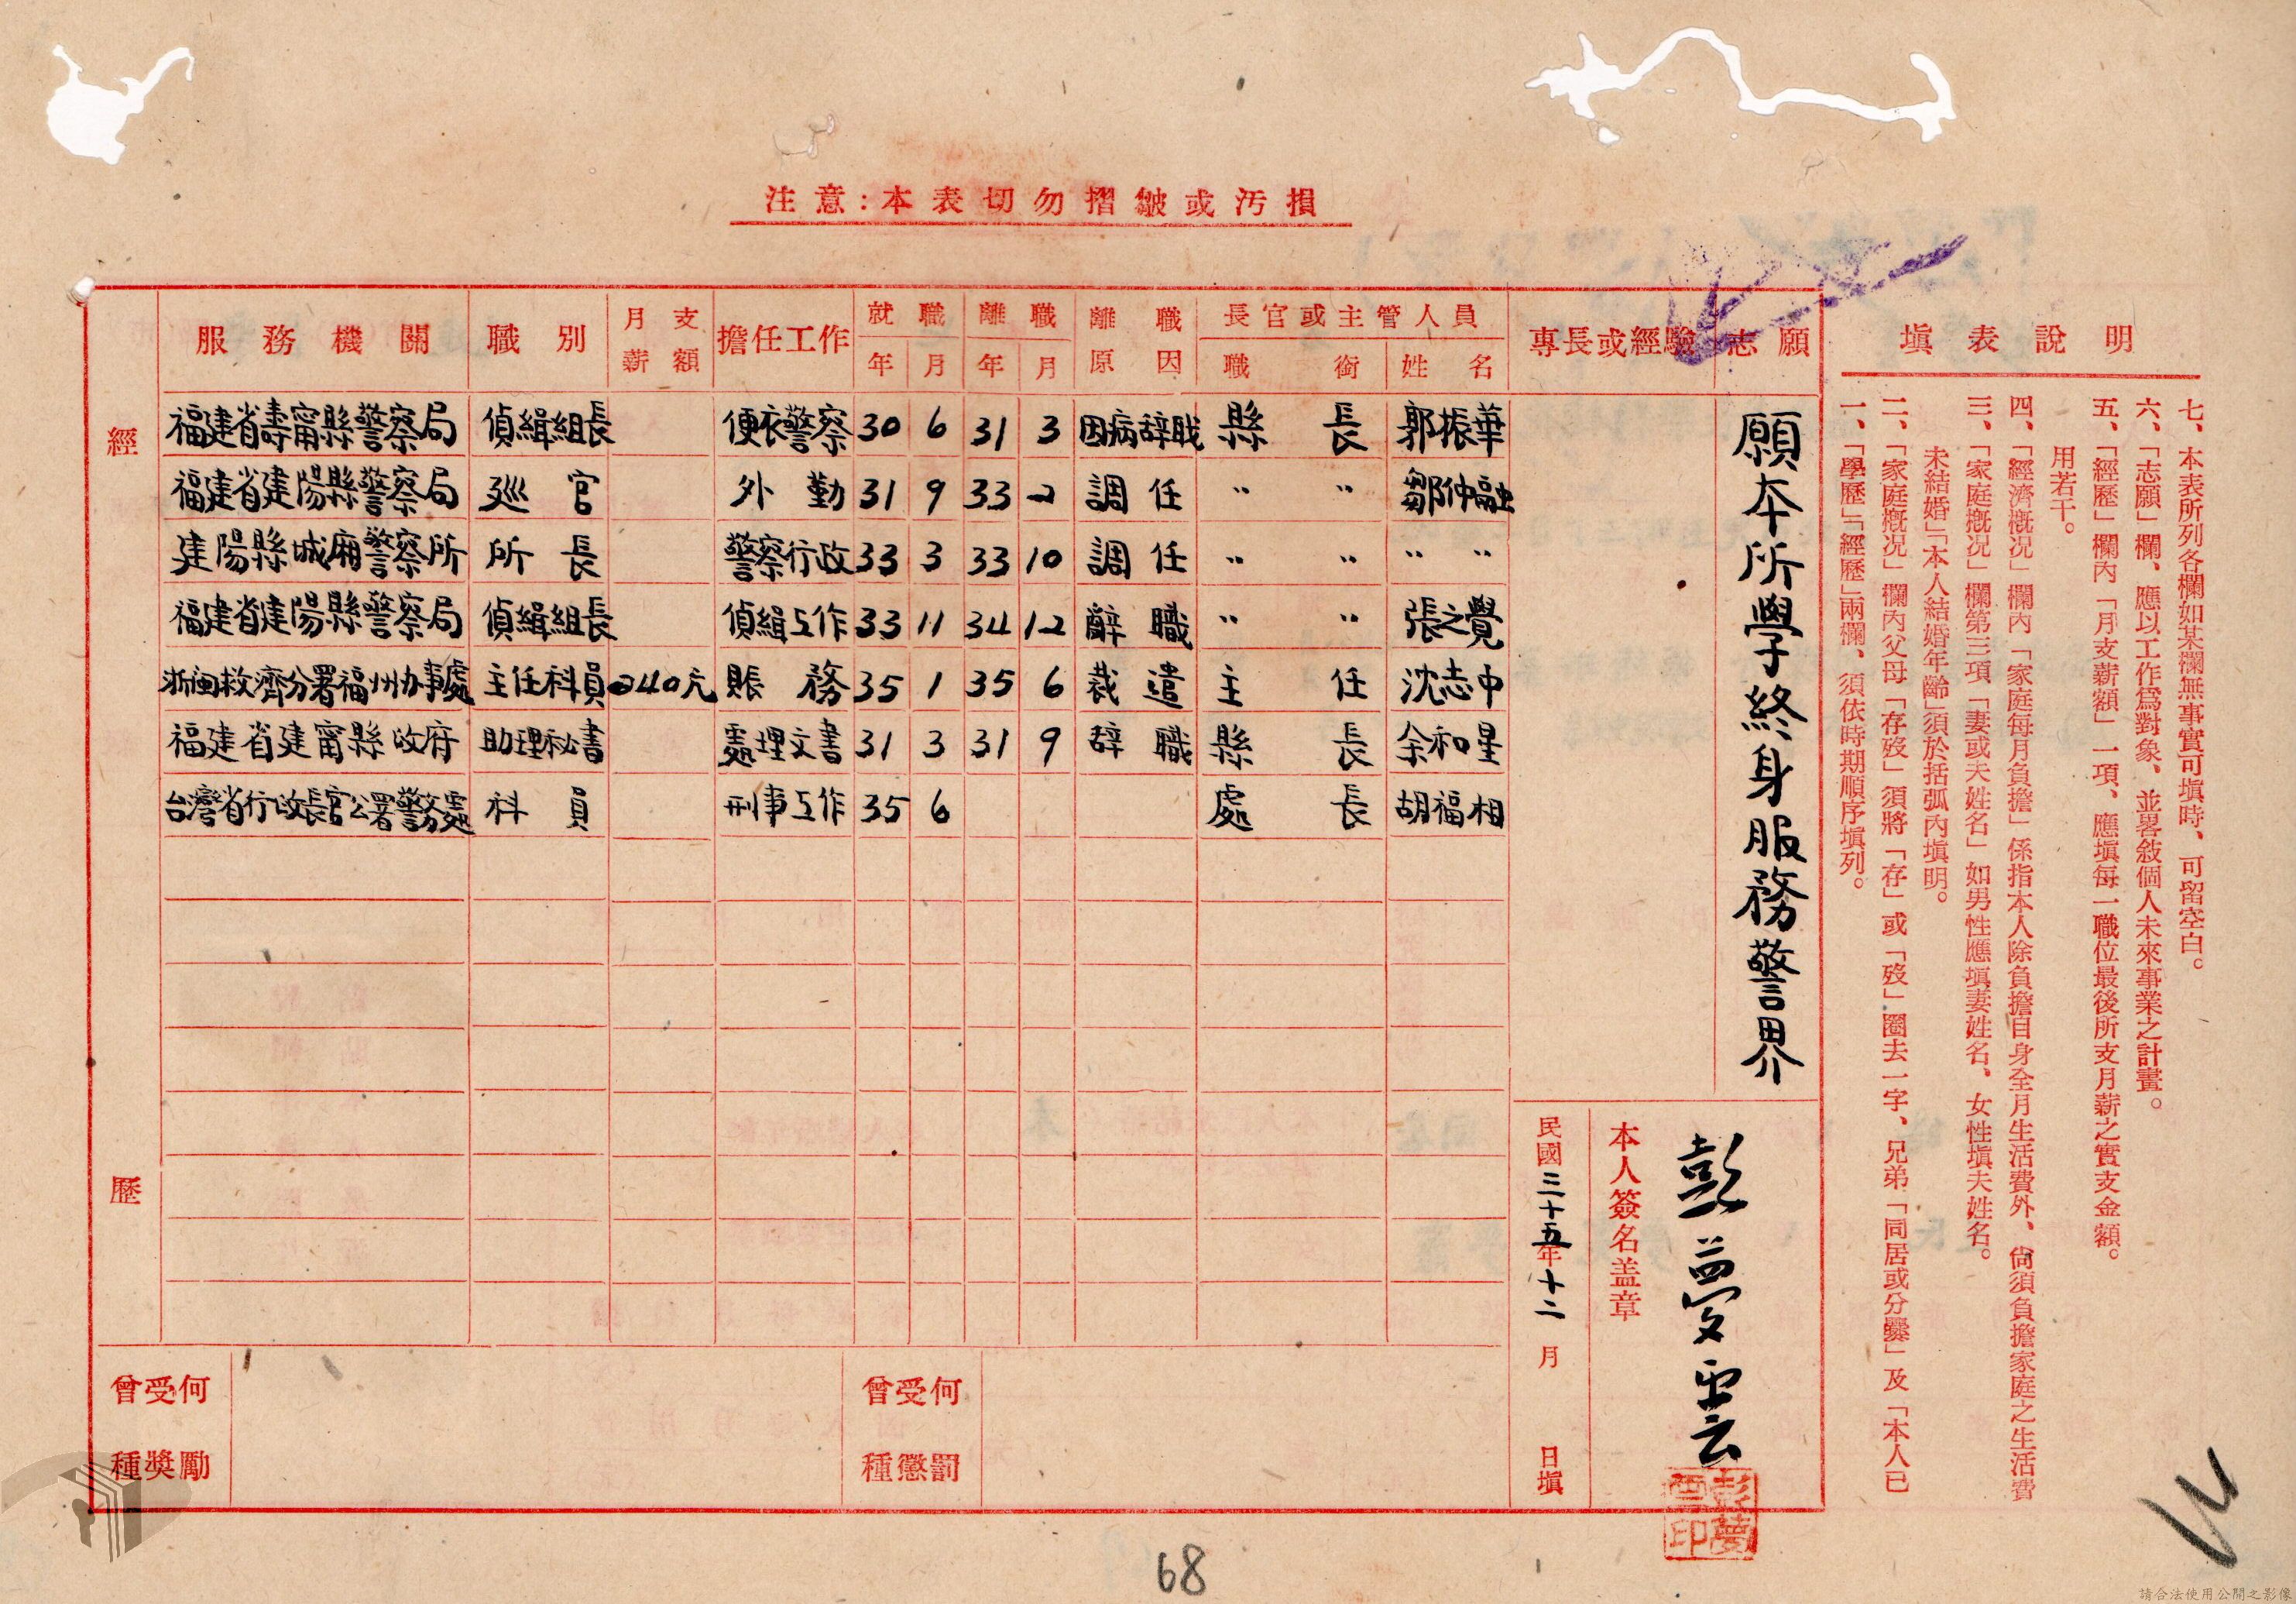 注意：本表切勿摺皺或汚損
經歷
服務機關 職別 月支薪額 擔任工作 就職 年 月 離職 年 月 離職原因 長官或主管人員 職銜 姓名
福建省壽甯縣警察局 偵緝組長 便衣警察 30 6 31 3 因病辞職 縣長 郭振華
福建省建陽縣警察局 巡官 外勤 31 9 33 2 調任 〃 〃 鄒仲融
建陽縣城廂警察所 所長 警察行政 33 3 33 10 調任 〃 〃 〃 〃
福建省建陽縣警察局 偵緝組長 偵緝工作 33 11 34 12 辭職 〃 〃 張之覺
浙閩救濟分署福州办事處 主任科員 240元 賬務 35 1 35 6 裁遣 主任 沈志中
福建省建甯縣政府 助理祕書 處理文書 31 3 31 9 辞職 縣長 余和星
台灣省行政長官公署警务處 科員 刑事工作 35 6 處長 胡福相
曾受何種獎勵
曾受何種懲罰
專長或經驗
志願
願本所學終身服務警界
本人簽名盖章
彭夢雲
彭夢雲印
民國三十五年十二月 日塡
塡表說明
一、「學歷」「經歷」兩欄、須依時期順序塡列。
二、「家庭槪况」欄內父母「存歿」須將「存」或「歿」圈去一字、兄弟「同居或分爨」及「本人已
未結婚」「本人結婚年齡」須於括弧內塡明。
三、「家庭槪况」欄第三項「妻或夫姓名」如男性應塡妻姓名、女性塡夫姓名。
四、「經濟槪况」欄內「家庭每月負擔」係指本人除負擔自身全月生活費外、尙須負擔家庭之生活費
用若干。
五、「經歷」欄內「月支薪額」一項、應塡每一職位最後所支月薪之實支金額。
六、「志願」欄、應以工作爲對象、並畧敍個人未來事業之計畫。
七、本表所列各欄如某欄無事實可塡時、可留空白。
68
請合法使用公開之影像